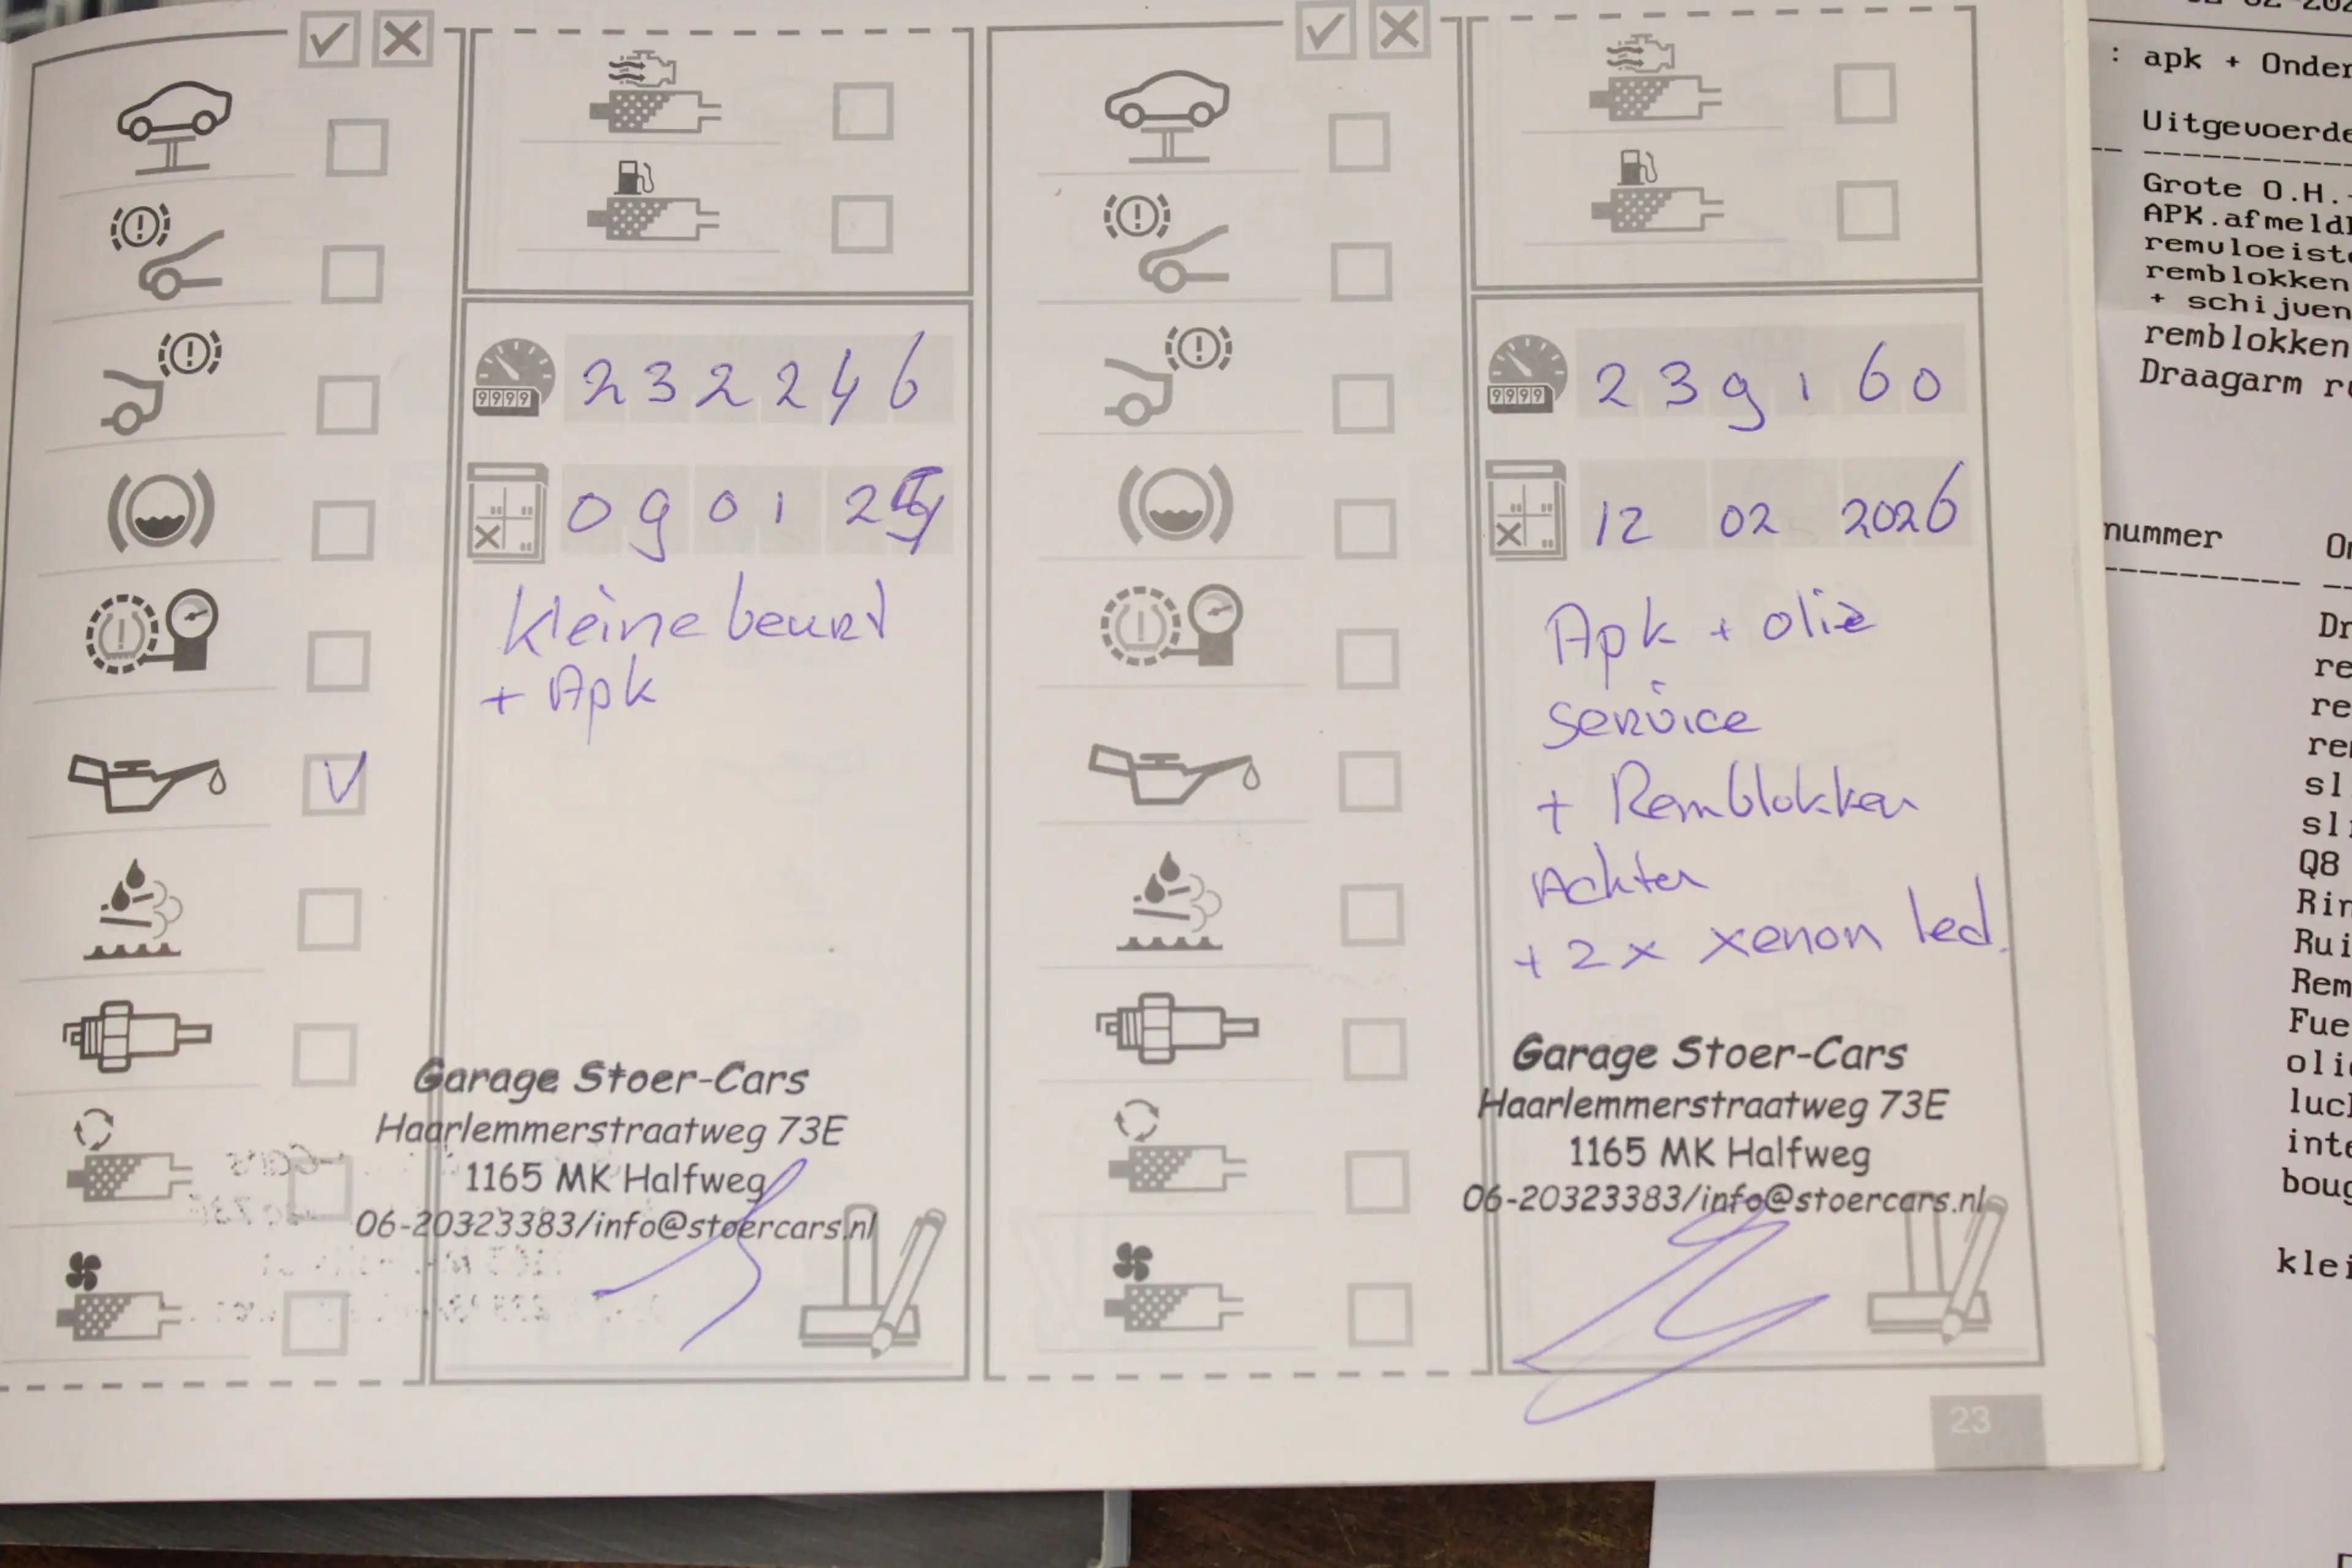 9999
232246
09 01 25
Kleine beurt
+ Apk
Garage Stoer-Cars
Haarlemmerstraatweg 73E
1165 MK Halfweg
06-20323383/info@stoercars.nl
9999
239160
12 02 2026
Apk + olie
service
+ Remblokken
Achter
+ 2x xenon led.
Garage Stoer-Cars
Haarlemmerstraatweg 73E
1165 MK Halfweg
06-20323383/info@stoercars.nl
23
: apk + Onder
Uitgevoerde
Grote O.H.
APK.afmeld
remvloeist
remblokken
+ schijven
remblokken
Draagarm r
nummer
Dr
re
re
re
sl
sl
Q8
Rin
Rui
Rem
Fue
oli
luc
inte
boug
klei